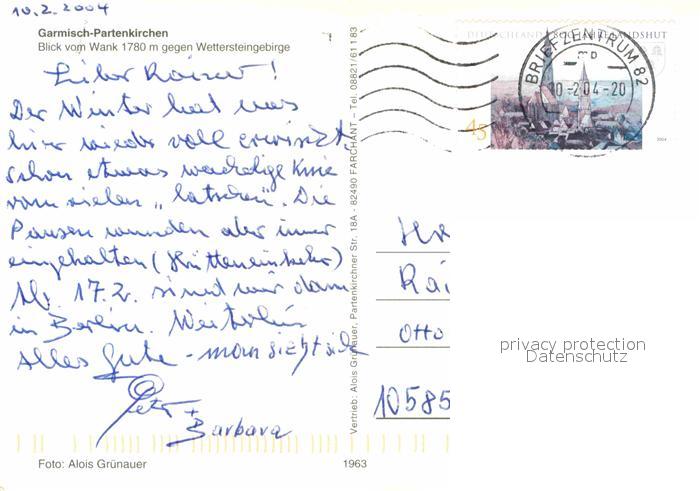 10.2.2004
Garmisch-Partenkirchen
Blick vom Wank 1780 m gegen Wettersteingebirge
Lieber Rainer!
Der Winter hat uns
hier wieder voll erwischt,
schon etwas wackelige Knie
vom vielen „latschen". Die
Pausen wurden aber immer
eingehalten (Hütteneinkehr)
Ab 17.2. sind wir dann
in Berlin. Weiterhin
Alles Gute - man sieht sich
Peter +
Barbara
Foto: Alois Grünauer
1963
Vertrieb: Alois Grünauer, Partenkirchner Str. 18A · 82490 FARCHANT – Tel. 08821/61183
DEUTSCHLAND 800 JAHRE LANDSHUT
45
2004
BRIEFZENTRUM 82
mp
10-2.04-20
Rai
Otto
10585
privacy protection
Datenschutz